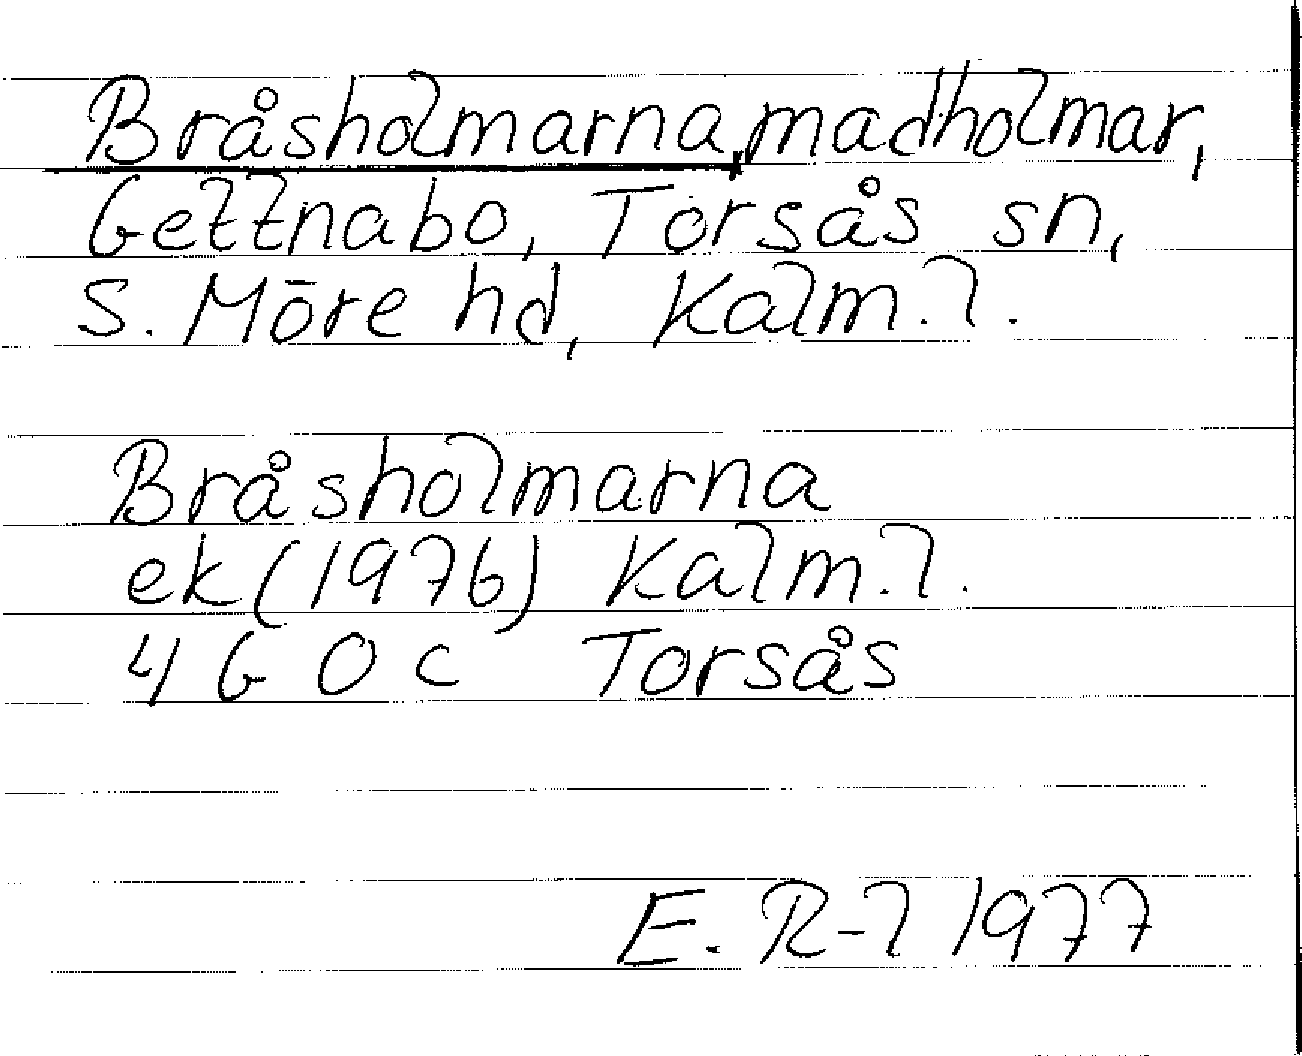 Bråsholmarna, madholmar,
Gettnabo, Torsås sn,
S. Möre hd, Kalm.l.
Bråsholmarna
ek (1976) Kalm.l.
4 G 0 c Torsås
E. R-l 1977